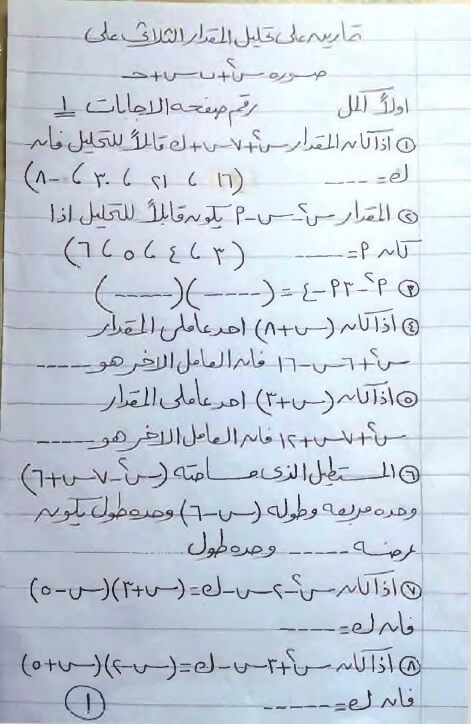 تمارين على تحليل المقدار الثلاثى على
صورة س²+ ب س + جـ
اولاً أكمل رقم صفحة الاجابات 1
① اذا كان المقدار س²+٧س+ك قابلاً للتحليل فان
ك= ---- (١٦ ، ٢١ ، ٣٠ ، -٨)
② المقدار س²-س-٩ يكون قابلاً للتحليل اذا
كان ٩= ---- (٣ ، ٤ ، ٥ ، ٦)
③ ٩²-٣٩-٤ = (----)(----)
④ اذا كان (س+٨) احد عاملى المقدار
س²+٦س-١٦ فان العامل الاخر هو ----
⑤ اذا كان (س+٣) احد عاملى المقدار
س²+٧س+١٢ فان العامل الاخر هو ----
⑥ المستطيل الذى مساحته (س²-٧س+٦)
وحدة مربعة وطوله (س-٦) وحدة طول يكون
عرضه ---- وحدة طول
⑦ اذا كان س²-٢س-ك=(س+٣)(س-٥)
فان ك= ----
⑧ اذا كان س²+٣س-ك=(س-٢)(س+٥)
فان ك= ----
①